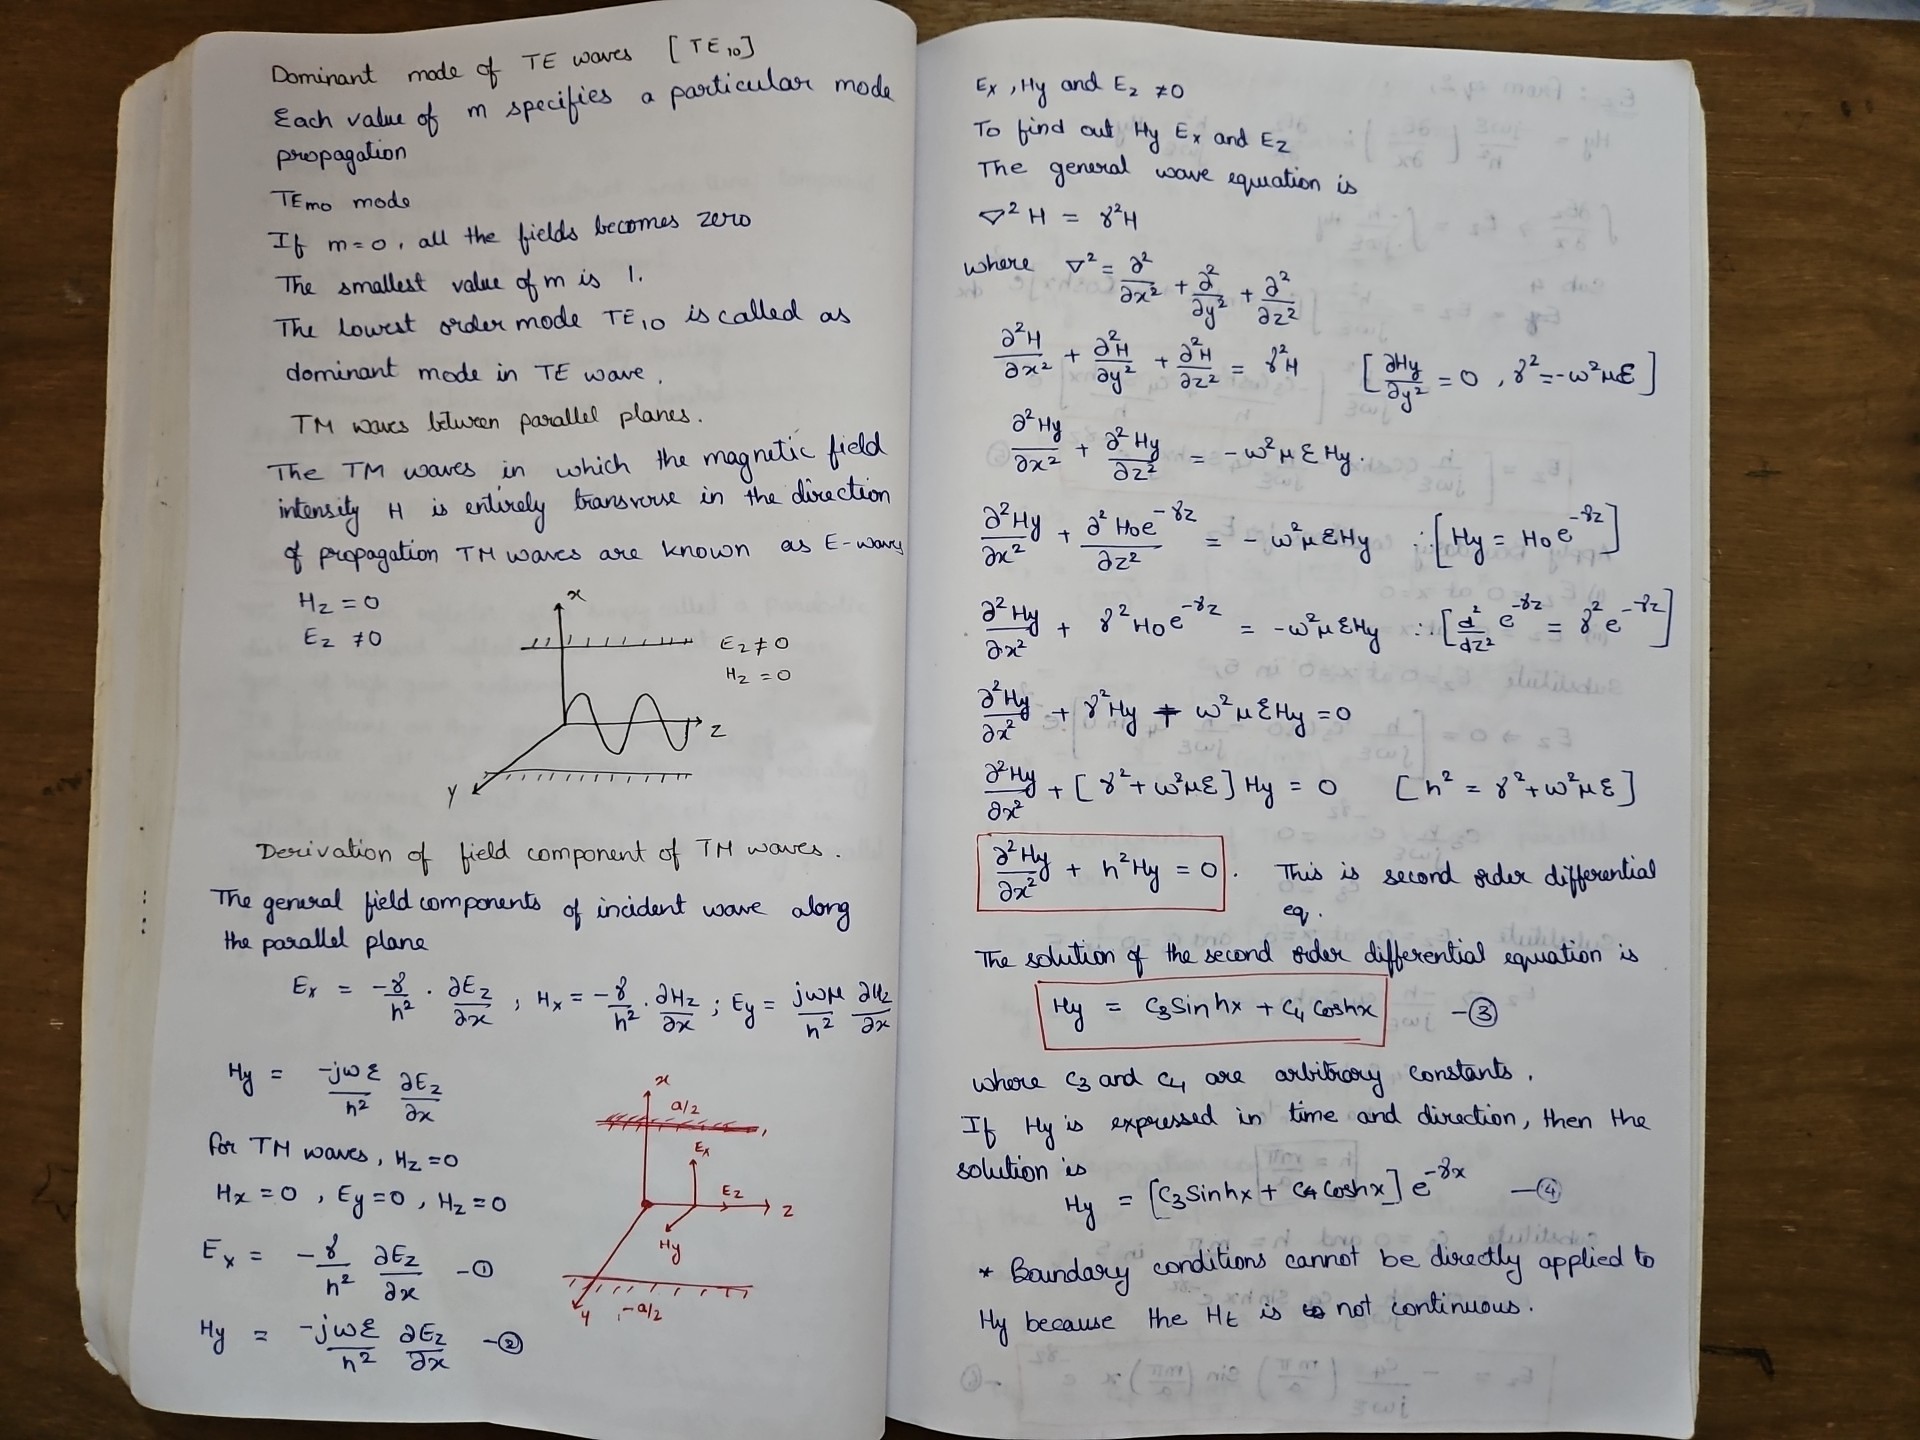 Dominant mode of TE waves [TE₁₀]
Each value of m specifies a particular mode
propagation
TEmo mode
If m=0, all the fields becomes zero
The smallest value of m is 1.
The lowest order mode TE₁₀ is called as
dominant mode in TE wave.
TM waves between parallel planes.
The TM waves in which the magnetic field
intensity H is entirely transverse in the direction
of propagation TM waves are known as E-waves
Hz = 0
Ez ≠ 0
x
Ez ≠ 0
Hz = 0
z
y
Derivation of field component of TM waves.
The general field components of incident wave along
the parallel plane
Ex = -γ/h² · ∂Ez/∂x ; Hx = -γ/h² · ∂Hz/∂x ; Ey = jωμ/h² ∂Hz/∂x
Hy = -jωε/h² ∂Ez/∂x
for TM waves, Hz = 0
Hx = 0, Ey = 0, Hz = 0
Ex = -γ/h² ∂Ez/∂x -①
Hy = -jωε/h² ∂Ez/∂x -②
x
a/2
Ex
Ez
z
Hy
y
-a/2
Ex, Hy and Ez ≠ 0
To find out Hy Ex and Ez
The general wave equation is
∇²H = γ²H
where ∇² = ∂²/∂x² + ∂²/∂y² + ∂²/∂z²
∂²H/∂x² + ∂²H/∂y² + ∂²H/∂z² = γ²H [∂Hy/∂y² = 0, γ² = -ω²με]
∂²Hy/∂x² + ∂²Hy/∂z² = -ω²μεHy.
∂²Hy/∂x² + ∂²H₀e^-γz/∂z² = -ω²μεHy ∴[Hy = H₀e^-γz]
∂²Hy/∂x² + γ²H₀e^-γz = -ω²μεHy ∴[d²/dz² e^-γz = γ²e^-γz]
∂²Hy/∂x² + γ²Hy + ω²μεHy = 0
∂²Hy/∂x² + [γ²+ω²με]Hy = 0 [h² = γ²+ω²με]
∂²Hy/∂x² + h²Hy = 0. This is second order differential
eq.
The solution of the second order differential equation is
Hy = C₃Sinhx + C₄Coshx -③
where C₃ and C₄ are arbitrary constants.
If Hy is expressed in time and direction, then the
solution is
Hy = [C₃Sinhx + C₄Coshx]e^-γx -④
* Boundary conditions cannot be directly applied to
Hy because the Ht is not continuous.